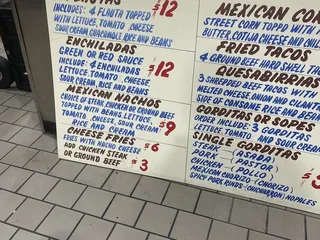 INCLUDES: 4 FLAUTA TOPPED
WITH LETTUCE, TOMATO, CHEESE
SOUR CREAM GUACAMOLE RICE AND BEANS
$12
ENCHILADAS
GREEN OR RED SAUCE
INCLUDES: 4 ENCHILADAS
LETTUCE TOMATO CHEESE
SOUR CREAM, RICE AND BEANS
$12
MEXICAN NACHOS
CHOICE OF STEAK, CHICKEN OR GROUND BEEF
TOPPED WITH BEANS, LETTUCE,
TOMATO, CHEESE, SOUR CREAM
RICE AND CREAM
$9
CHEESE FRIES
FRIES WITH NACHO CHEESE
$6
ADD CHICKEN STEAK
OR GROUND BEEF
$3
MEXICAN
STREET CORN TOPPED WITH
BUTTER, COTIJA CHEESE AND
FRIED TACOS
4 GROUND BEEF HARD SHELL
QUESABIRRIAS
3 SHREDDED BEEF TACOS WITH
MELTED CHEESE ONION AND
ONE OF CONSOME
GORDITAS OR SOPES
ORDER INCLUDE: 3 GORDITAS
LETTUCE, TOMATO AND SOUR CREAM
SINGLE GORDITAS
STEAK (ASADA)
PORK (PASTOR)
CHICKEN (POLLO)
MEXICAN CHORIZO (CHORIZO)
SPICY PORK RINDS (CHICHARRON) NOPALES